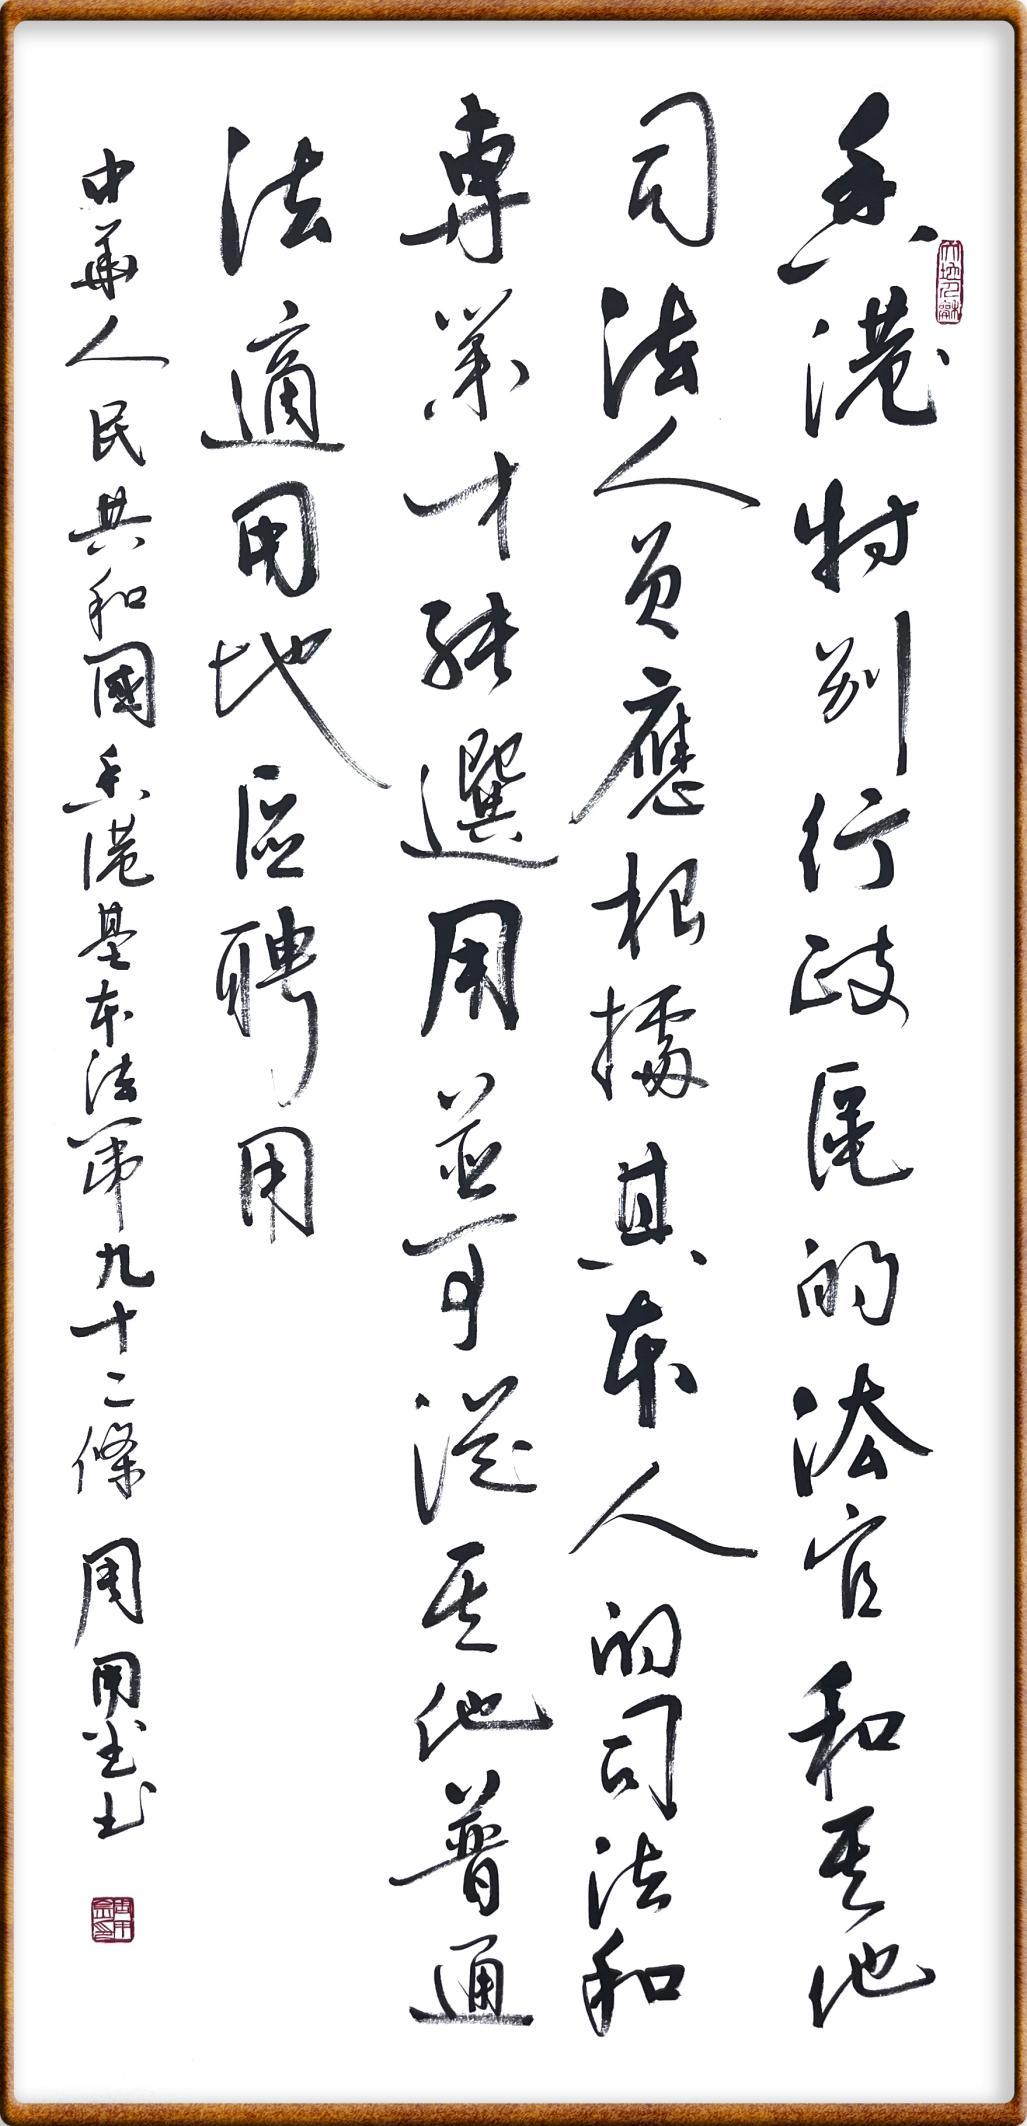 香港特別行政區的法官和其他
司法人員應根據其本人的司法和
專業才能選用並可從其他普通
法適用地區聘用
中華人民共和國香港基本法第九十二條 周用金书
周用金印